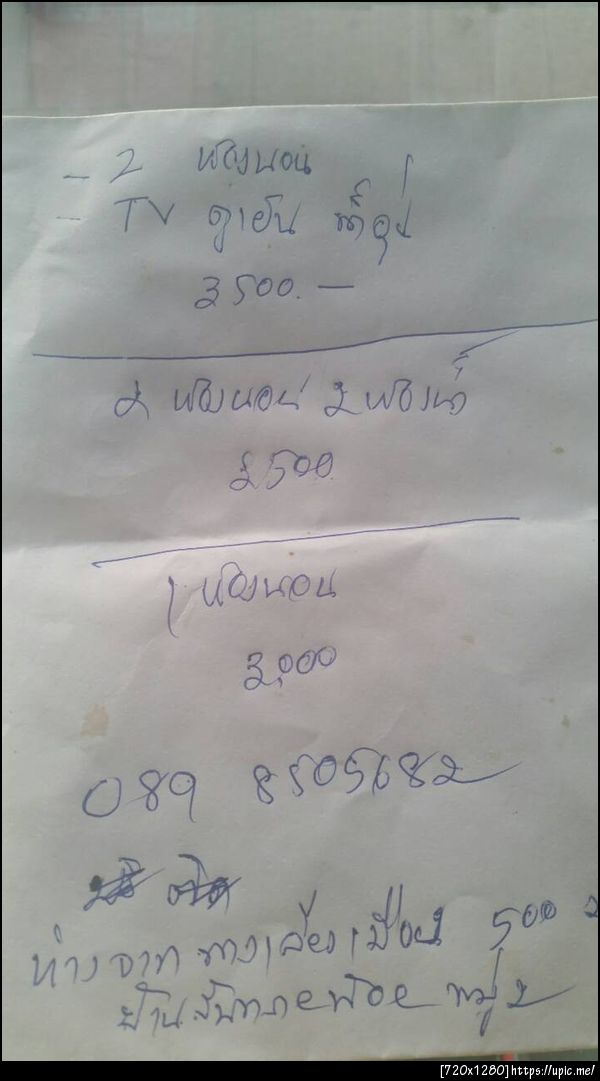 - 2 ห้องนอน
- TV ตู้เย็น น้ำอุ่น
3500.—
2 ห้องนอน 2 ห้องน้ำ
3500
1 ห้องนอน
3,000
089 8505682
ห่างจากทางเลี่ยงเมือง 500
บ้านสันทรายน้อย หมู่ 2
[720x1280]https://upic.me/